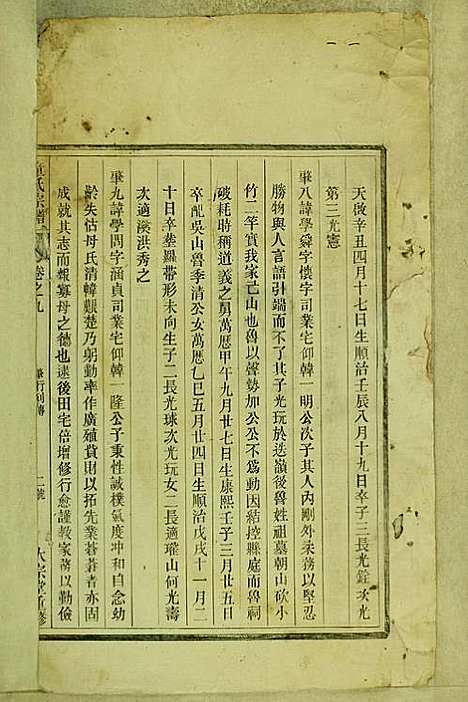 天啟辛丑四月十七日生順治壬辰八月十九日卒子三長光銓次光
第三光憲
肇八諱學舜字懷宇司業宅仰韓一明公次子其人內剛外柔務以堅忍
勝物與人言語引端而不了其子光玩於迭嶺後魯姓祖墓朝山砍小
竹二竿實我家己山也魯以聲勢加公公不為動因結控縣庭而魯祠
破耗時稱道義之勇萬歷甲午九月廿七日生康熙壬子三月廿五日
卒配吳山魯季清公女萬歷乙巳五月廿四日生順治戊戌十一月二
十日卒葬羅帶形未向生子二長光球次光玩女二長適璀山何光濤
次適渓洪秀之
肇九諱學問字涵貞司業宅仰韓一隆公子秉性誠樸氣度冲和自念幼
齡失怙母氏清韓艱楚乃躬勤率作廣殖貲財以拓先業蒼蒼者亦固
成就其志而報寡母之德也逮後田宅倍增修行愈謹教家務以勤儉
氏宗譜 卷之九 肇行列傳 二號 大宗堂首修